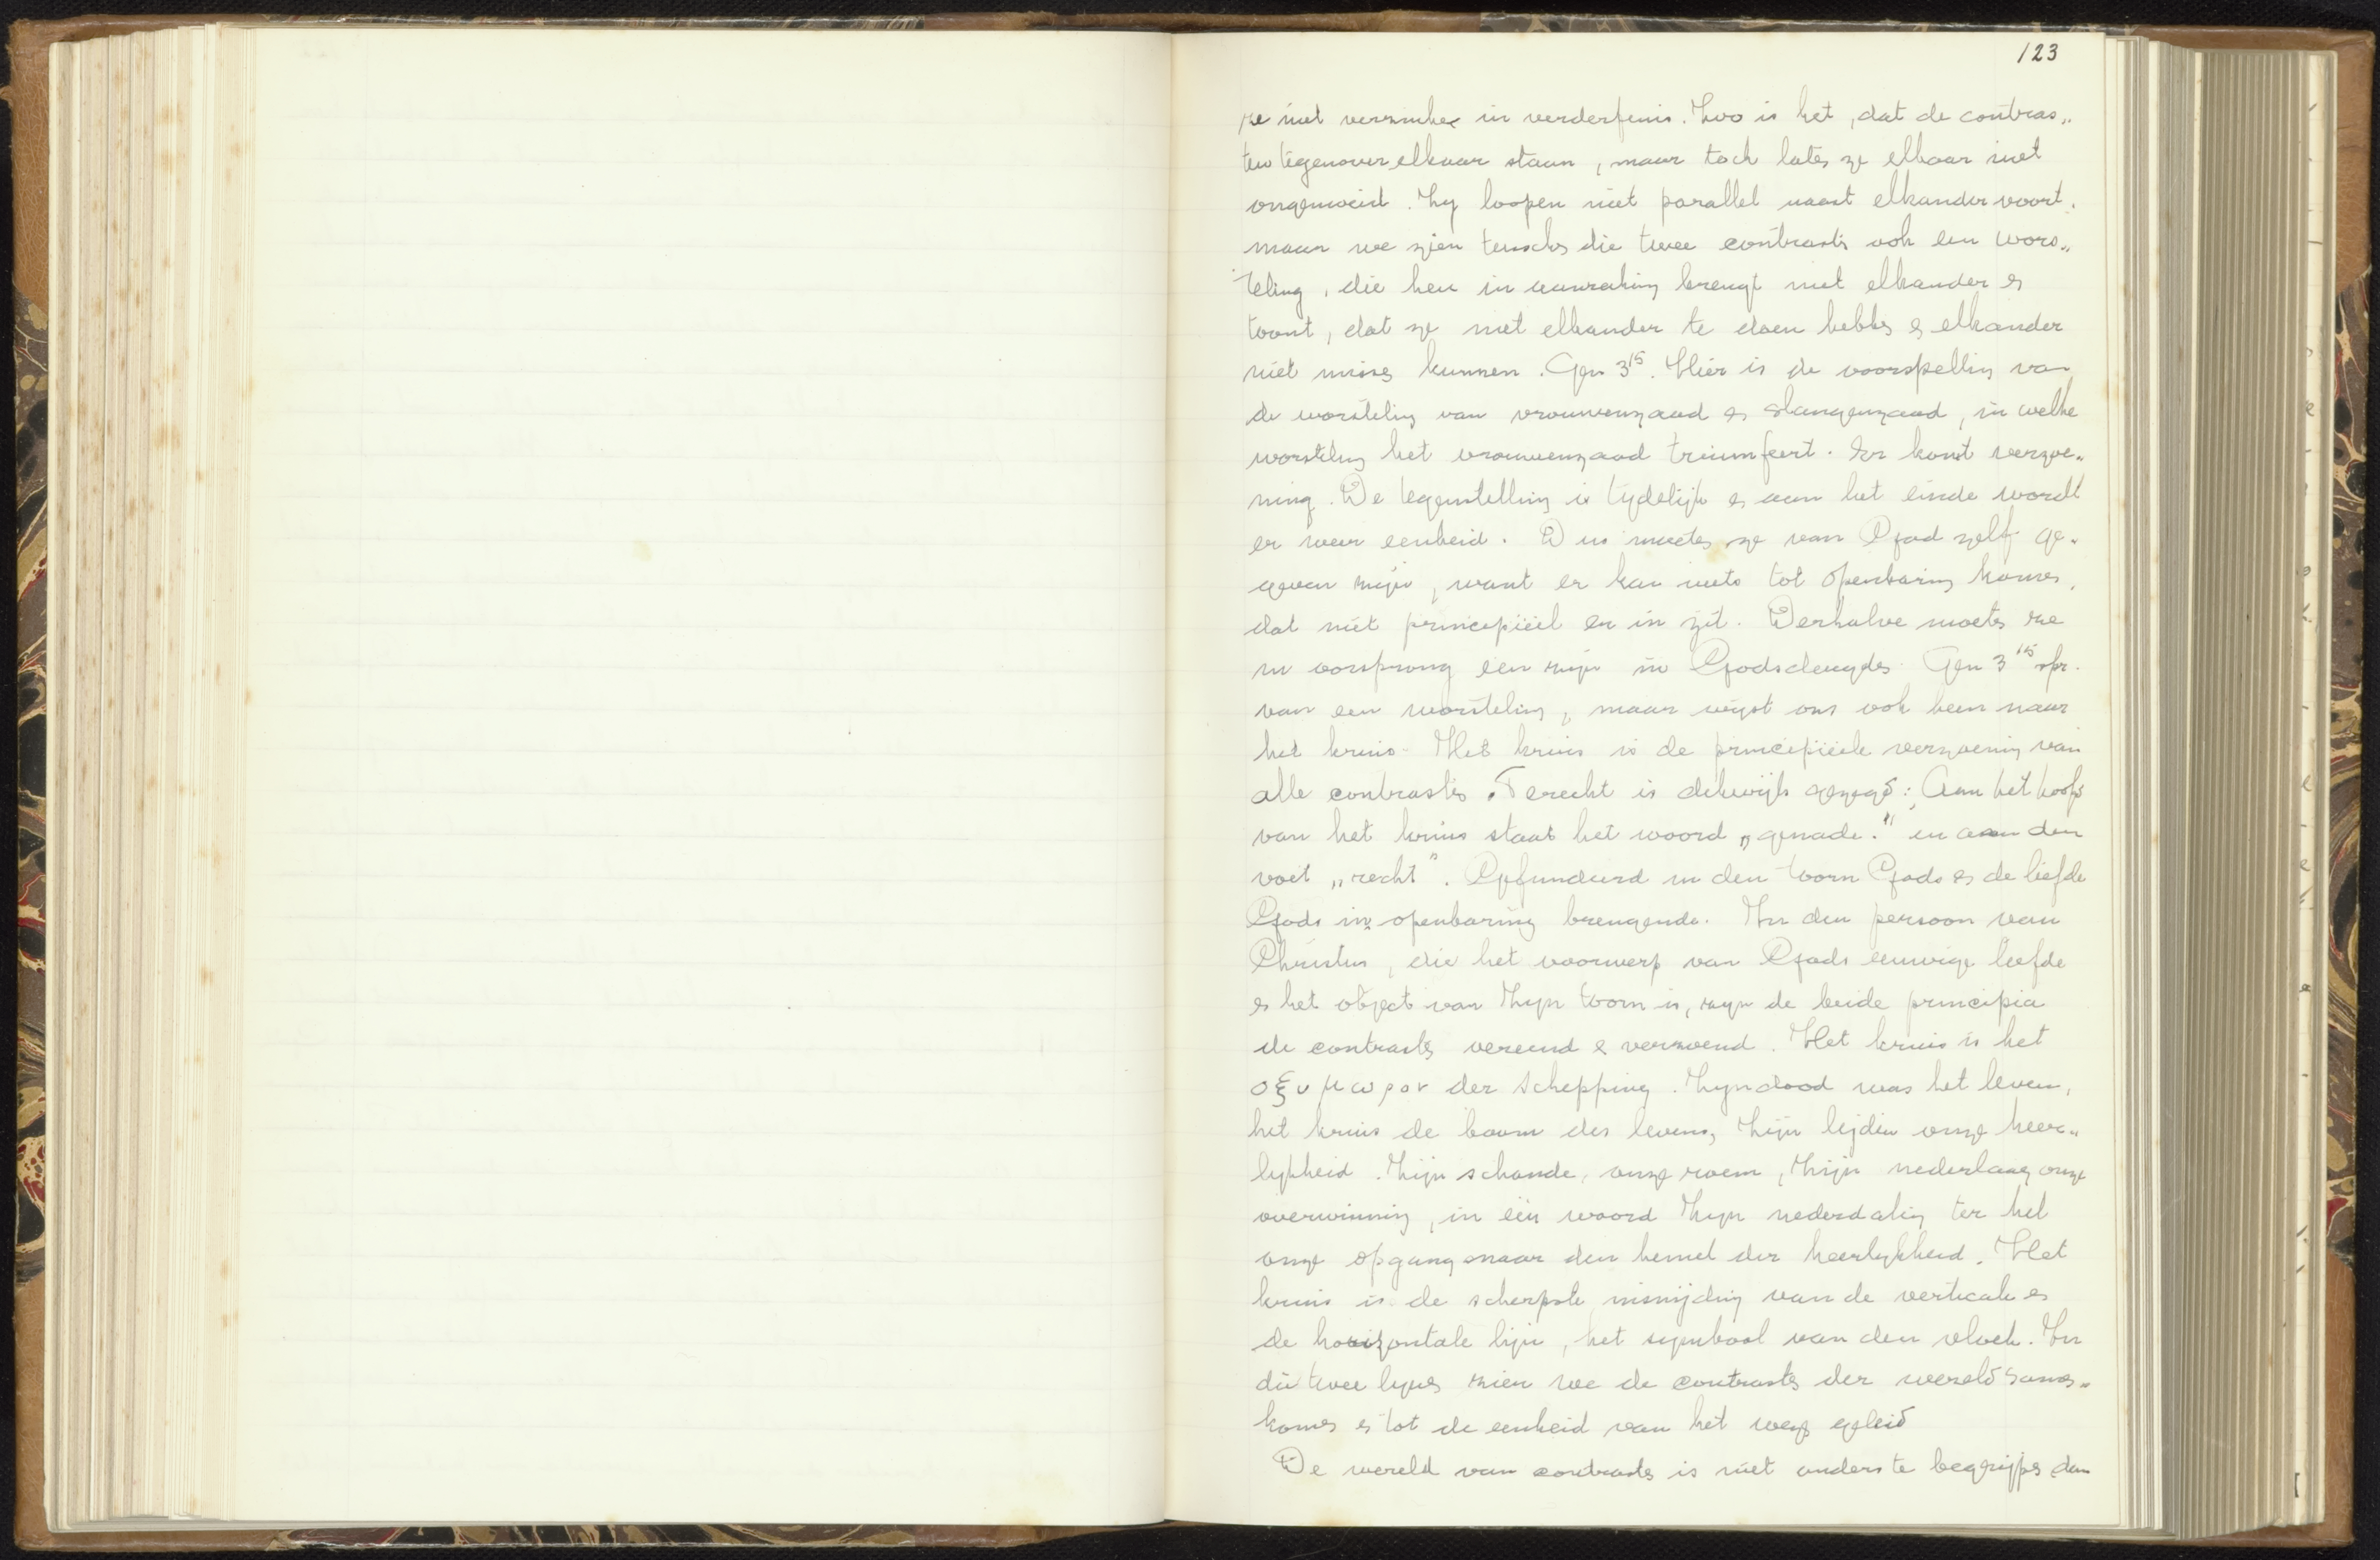 123
ze niet verzinken in verderfenis. Zoo is het, dat de contras„
ten tegenover elkaar staan, maar toch laten ze elkaar niet
ongemoeid. Zy loopen niet parallel naast elkander voort.
maar we zien tusschen die twee contrasten ook een wors„
teling, die hen in aanraking brengt met elkander en
toont, dat ze met elkander te doen hebben en elkander
niet missen kunnen. Gen 3¹⁵. Hier is de voorspelling van
de worsteling van vrouwenzaad en slangenzaad, in welke
worsteling het vrouwenzaad triumfeert. Er komt verzoe„
ning. De tegenstelling is tydelijk en aan het einde wordt
er weer eenheid. Dus moeten ze van God zelf ge„
geven zijn, want er kan niets tot openbaring komen,
dat niet principiëel er in zit. Derhalve moeten ze
in oorsprong één zijn in Godsdeugden. Gen 3¹⁵ spr.
van een worsteling, maar wijst ons ook heen naar
het kruis. Het kruis is de principiëele verzoening van
alle contrasten. Terecht is dikwijls gezegd: Aan het hoofd
van het kruis staat het woord „genade." en aan den
voet „recht". Gefundeerd in den toorn Gods en de liefde
Gods in openbaring brengende. In den persoon van
Christus, die het voorwerp van Gods eeuwige liefde
en het object van Zijn toorn is, zyn de beide principia
de contrasten vereend en verzoend. Het kruis is het
οξυμωρον der schepping. Zyn dood was het leven,
het kruis de boom des levens, Zijn lijden onze heer„
lykheid. Zijn schande, onze roem, Zijn nederlaag onze
overwinning, in één woord Zyn nederdaling ter hel
onze opgang naar den hemel der heerlykheid. Het
kruis is de scherpste insnijding van de verticale en
de horizontale lijn, het symbool van den vloek. In
die twee lynen zien we de contrasten der wereld samen„
komen en tot de eenheid van het weze geleid
De wereld van contrasten is niet anders te begrijpen dan